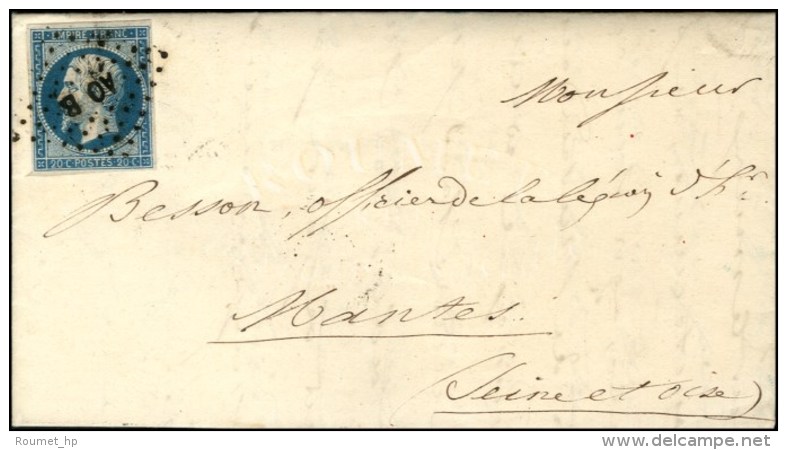 EMPIRE FRANC
AO B
20 C. POSTES 20 C.
Monsieur
Besson, officier de la légion d'hr.
Mantes.
(Seine et oise)
Roumet_hp
©delcampe.net